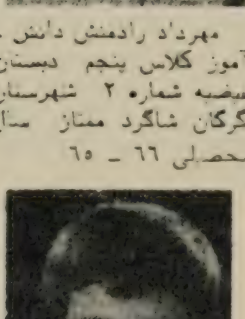 مهرداد رادمنش دانش ـ
آموز کلاس پنجم دبستان
فیضیه شماره ۲ شهرستان
گرگان شاگرد ممتاز سال
تحصیلی ٦٦ ـ ٦٥